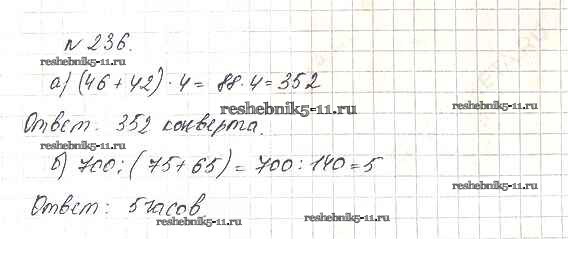 № 236.
reshebnik5-11.ru
а) (46 + 42) · 4 = 88 · 4 = 352
reshebnik5-11.ru
reshebnik5-11.ru
Ответ: 352 конверта.
reshebnik5-11.ru
б) 700 : (75 + 65) = 700 : 140 = 5
reshebnik5-11.ru
Ответ: 5 часов
reshebnik5-11.ru
reshebnik5-11.ru